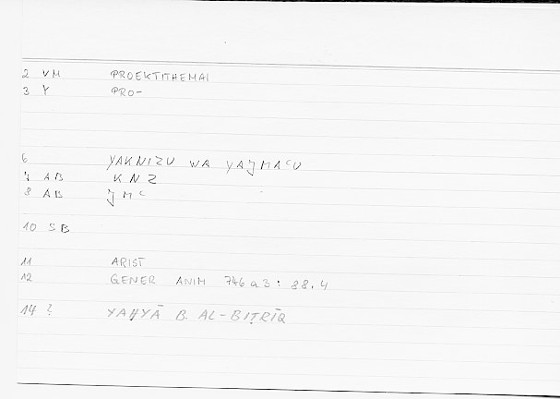 2 VM PROEKTITHEMAI
3 Y PRO-
6 YAKNIZU WA YAJMAᶜU
7 AB KNZ
8 AB JMᶜ
10 SB
11 ARIST
12 GENER ANIM 746a3 : 88.4
14 ? YAḤYĀ B. AL-BIṬRĪQ